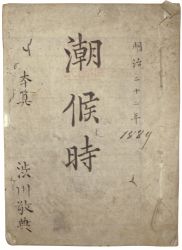 明治二十二年
1889
潮候時
渋川敬典